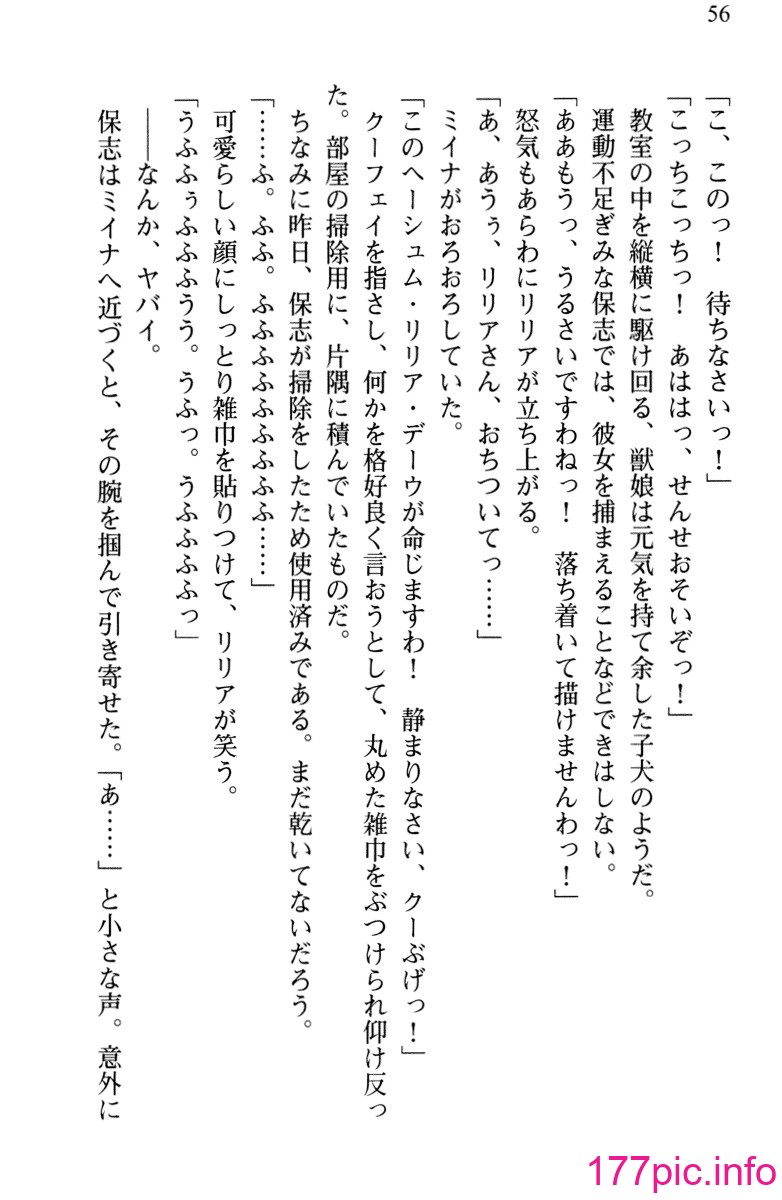 56
「こ、このっ！　待ちなさいっ！」
「こっちこっちっ！　あははっ、せんせおそいぞっ！」
　教室の中を縦横に駆け回る、獣娘は元気を持て余した子犬のようだ。
　運動不足ぎみな保志では、彼女を捕まえることなどできはしない。
「ああもうっ、うるさいですわねっ！　落ち着いて描けませんわっ！」
　怒気もあらわにリリアが立ち上がる。
「あ、あうぅ、リリアさん、おちついてっ……」
　ミイナがおろおろしていた。
「このヘーシュム・リリア・デーウが命じますわ！　静まりなさい、クーぶげっ！」
　クーフェイを指さし、何かを格好良く言おうとして、丸めた雑巾をぶつけられ仰け反っ
た。部屋の掃除用に、片隅に積んでいたものだ。
　ちなみに昨日、保志が掃除をしたため使用済みである。まだ乾いてないだろう。
「……ふ。ふふ。ふふふふふふふふ……」
　可愛らしい顔にしっとり雑巾を貼りつけて、リリアが笑う。
「うふふぅふふふうう。うふっ。うふふふふっ」
　――なんか、ヤバイ。
　保志はミイナへ近づくと、その腕を掴んで引き寄せた。「あ……」と小さな声。意外に
177pic.info